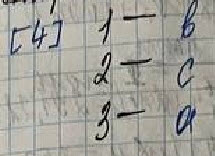 [4] 1 – b
2 – c
3 – a